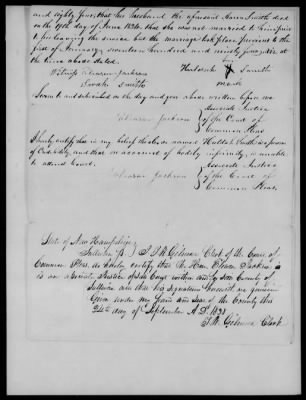 and eighty four, that her husband the aforesaid Aaron Smith died
on the 19th day of June 1836. that she was not married to him prior
to his leaving the service but the marriage took place previous to the
first of January, seventeen hundred and ninety four, viz. at
the time above stated.
her
Huldah X Smith
mark
Witness Eleazer Jackson
Sarah Smith
Sworn to and subscribed on the day and year above written before me
Eleazer Jackson } Associate Justice
of the Court of
Common Pleas
I hereby certify that it is my belief the above named Huldah Smith is a person
of Credibility, and that on account of bodily infirmity, is unable
to attend Court.
Eleazer Jackson } Associate Justice
of the Court of
Common Pleas.
State of New Hampshire }
Sullivan Ss. } Clerk of the Court of
Common Pleas. do hereby certify that the Hon. Eleazer Jackson
is an Associate Justice of said Court within and for said County of
Sullivan and that his signatures herewith are genuine
Given under my hand and seal of the County this
24th day of September A.D. 1838
Clerk